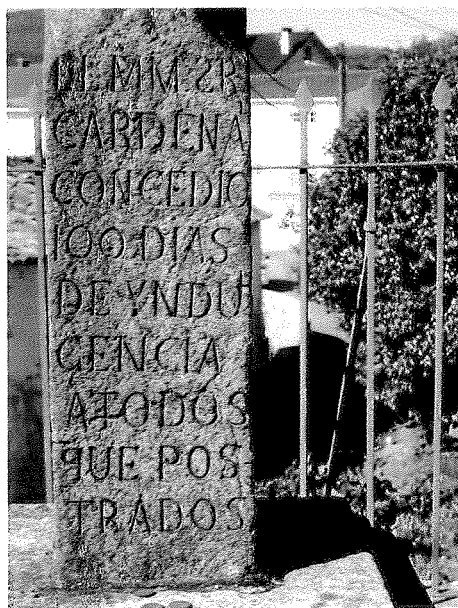 EL MM SR
CARDENA
CONCEDIO
100 DIAS
DE YNDU
GENCIA
A TODOS
QUE POS
TRADOS